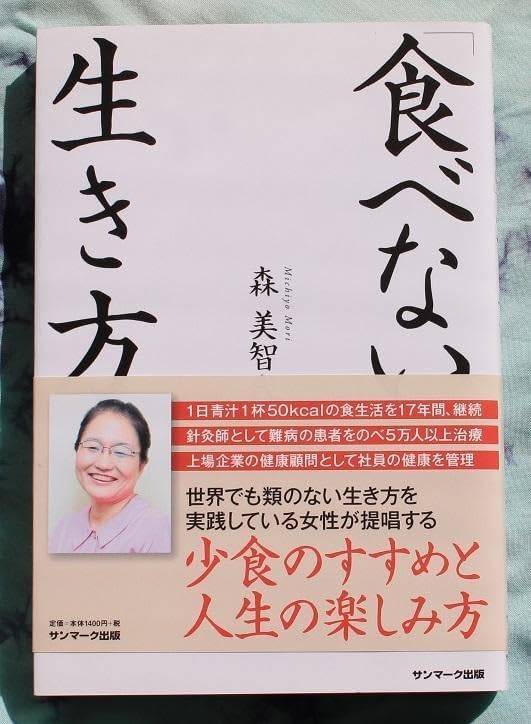 「食べない
生き方
Michiyo Mori
森 美智
1日青汁1杯50kcalの食生活を17年間、継続
針灸師として難病の患者をのべ5万人以上治療
上場企業の健康顧問として社員の健康を管理
世界でも類のない生き方を
実践している女性が提唱する
少食のすすめと
人生の楽しみ方
定価=本体1400円+税
サンマーク出版
サンマーク出版